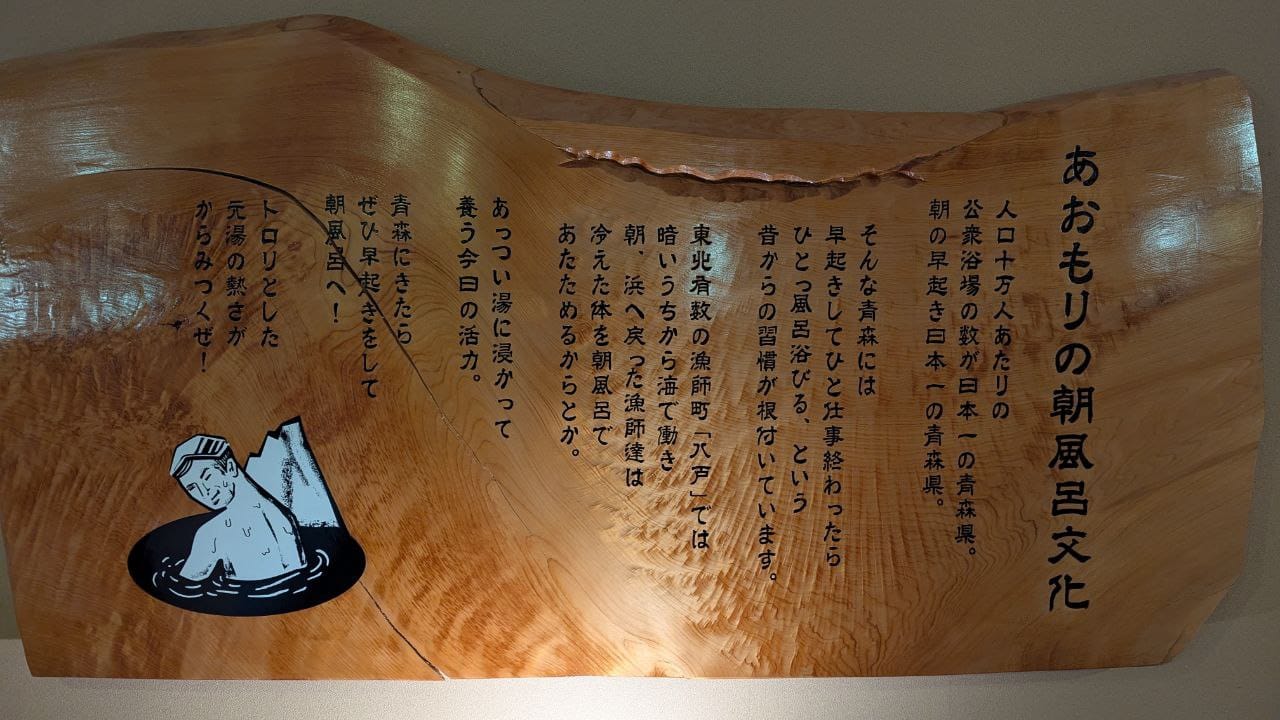 あおもりの朝風呂文化
人口十万人あたりの
公衆浴場の数が日本一の青森県。
朝の早起き日本一の青森県。
そんな青森には
早起きしてひと仕事終わったら
ひとっ風呂浴びる、という
昔からの習慣が根付いています。
東北有数の漁師町「八戸」では
暗いうちから海で働き
朝、浜へ戻った漁師達は
冷えた体を朝風呂で
あたためるからとか。
あっつい湯に浸かって
養う今日の活力。
青森にきたら
ぜひ早起きをして
朝風呂へ！
トロリとした
元湯の熱さが
からみつくぜ！